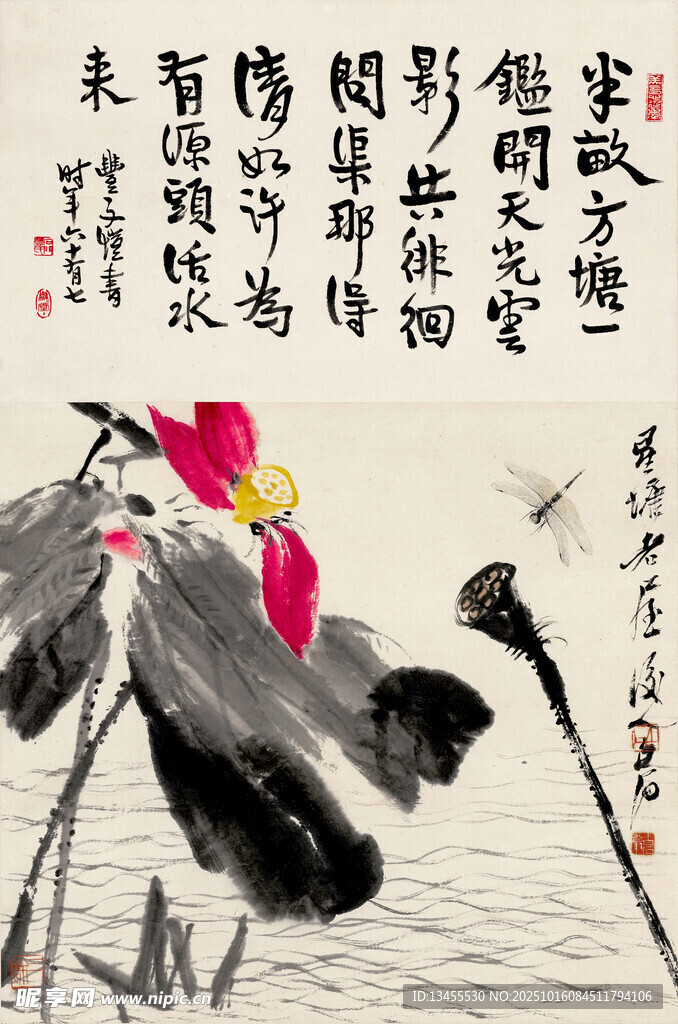 半畝方塘一
鑑開天光雲
影共徘徊
問渠那得
清如许為
有源頭活水
来
豐子愷書
时年六十有七
星塘老屋後人白石
昵享网 www.nipic.cn
ID:13455530 NO:20251016084511794106